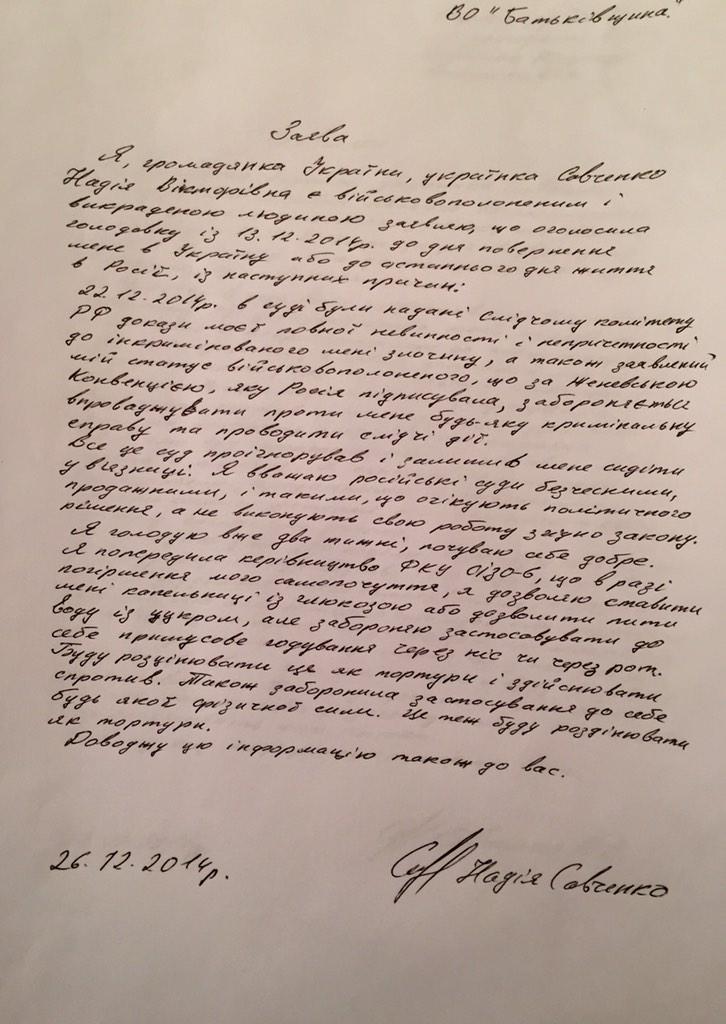 ВО "Батьківщина."
Заява
Я, громадянка України, українка Савченко
Надія Вікторівна є військовополоненим і
викраденою людиною заявляю, що оголосила
голодовку із 13.12.2014р. до дня повернення
мене в Україну або до останнього дня життя
в Росії, із наступних причин:
22.12.2014р. в суді були надані Слідчому комітету
РФ докази моєї повної невинності і непричетності
до інкримінованого мені злочину, а також заявлений
мій статус військовополоненого, що за Женевською
Конвенцією, яку Росія підписувала, забороняється
впроваджувати проти мене будь-яку кримінальну
справу та проводити слідчі дії.
Все це суд проігнорував і залишив мене сидіти
у в'язниці. Я вважаю російські суди безчесними,
продажними, і такими, що очікують політичного
рішення, а не виконують свою роботу згідно закону.
Я голодую вже два тижні, почуваю себе добре.
Я попередила керівництво ФКУ СІЗО-6, що в разі
погіршення мого самопочуття, я дозволяю ставити
мені капельниці із глюкозою або дозволити пити
воду із цукром, але забороняю застосовувати до
себе примусове годування через ніс чи через рот.
Буду розцінювати це як тортури і здійснювати
спротив. Також заборонила застосування до себе
будь якої фізичної сили. Це теж буду розцінювати
як тортури.
Доводжу цю інформацію також до вас.
26.12.2014р.
Надія Савченко